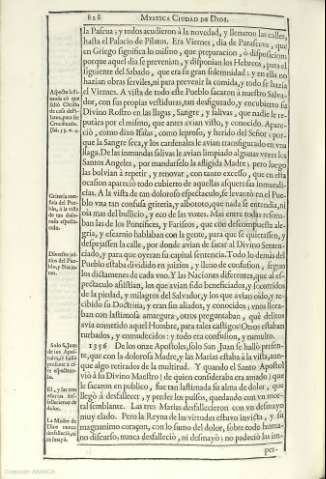 818 MYSTICA CIUDAD DE DIOS.
la Pascua; y todos acudieron à la novedad, y llenaron las calles,
hasta el Palacio de Pilatos. Era Viernes, dia de Parasceve, que
en Griego significa lo mismo, que preparacion, ò disposicion;
porque aquel dia se prevenian, y disponian los Hebreos, para el
siguiente del Sabado, que era su gran solemnidad; y en ella no
hazian obras serviles, ni para prevenir la comida, y todo se hazia
el Viernes. A vista de todo este Pueblo sacaron à nuestro Salva-
dor, con sus propias vestiduras, tan desfigurado, y encubierto su
Divino Rostro en las llagas, Sangre, y salivas, que nadie le re-
putàra por el mismo, que antes avian visto, y conocido. Apare-
ciò, como dixo Isaìas, como leproso, y herido del Señor; por-
que la Sangre seca, y los cardenales le avian transfigurado en vna
llaga. De las inmundas salivas le avian limpiado algunas vezes los
Santos Angeles, por mandarselo la afligida Madre; pero luego
las bolvian à repetir, y renovar, con tanto excesso, que en esta
ocasion apareciò todo cubierto de aquellas asquerosas inmundi-
cias. A la vista de tan doloroso espectaculo, se levantò en el Pue-
blo vna tan confusa griteria, y alboroto, que nada se entendia, ni
oìa mas del bullicio, y eco de las vozes. Mas entre todas resona-
ban las de los Pontifices, y Fariseos, que con descompuesta ale-
gria, y escarnio hablaban con la gente, para que se quietassen, y
despejassen la calle, por donde avian de sacar al Divino Senten-
ciado, y para que oyeran su capital sentencia. Todo lo demàs del
Pueblo estaba dividido en juizios, y lleno de confusion, segun
los dictamenes de cada vno. Y las Naciones diferentes, que al es-
pectaculo assistian, los que avian sido beneficiados, y socorridos
de la piedad, y milagros del Salvador, y los que avian oìdo, y re-
cibido su Doctrina, y eran sus aliados, y conocidos; vnos llora-
ban con lastimosa amargura, otros preguntaban, què delitos
avia cometido aquel Hombre, para tales castigos? Otros estaban
turbados, y enmudecidos; y todo era confusion, y tumulto.
1356 De los onze Apostoles, solo San Juan se hallò presen-
te, que con la dolorosa Madre, y las Marias estaba à la vista, aun-
que algo retirados de la multitud. Y quando el Santo Apostol
viò à su Divino Maestro (de quien consideraba era amado) que
le sacaron en publico, fue tan lastimada su alma de dolor, que
llegò à desfallecer, y perder los pulsos, quedando con vn mor-
tal semblante. Las tres Marias desfallecieron con vn desmayo
muy elado. Pero la Reyna de las virtudes estuvo invicta, y su
magnanimo coraçon, con lo sumo del dolor, sobre todo huma-
no discurso, nunca desfalleciò, ni desmayò; no padeciò las im-
per-